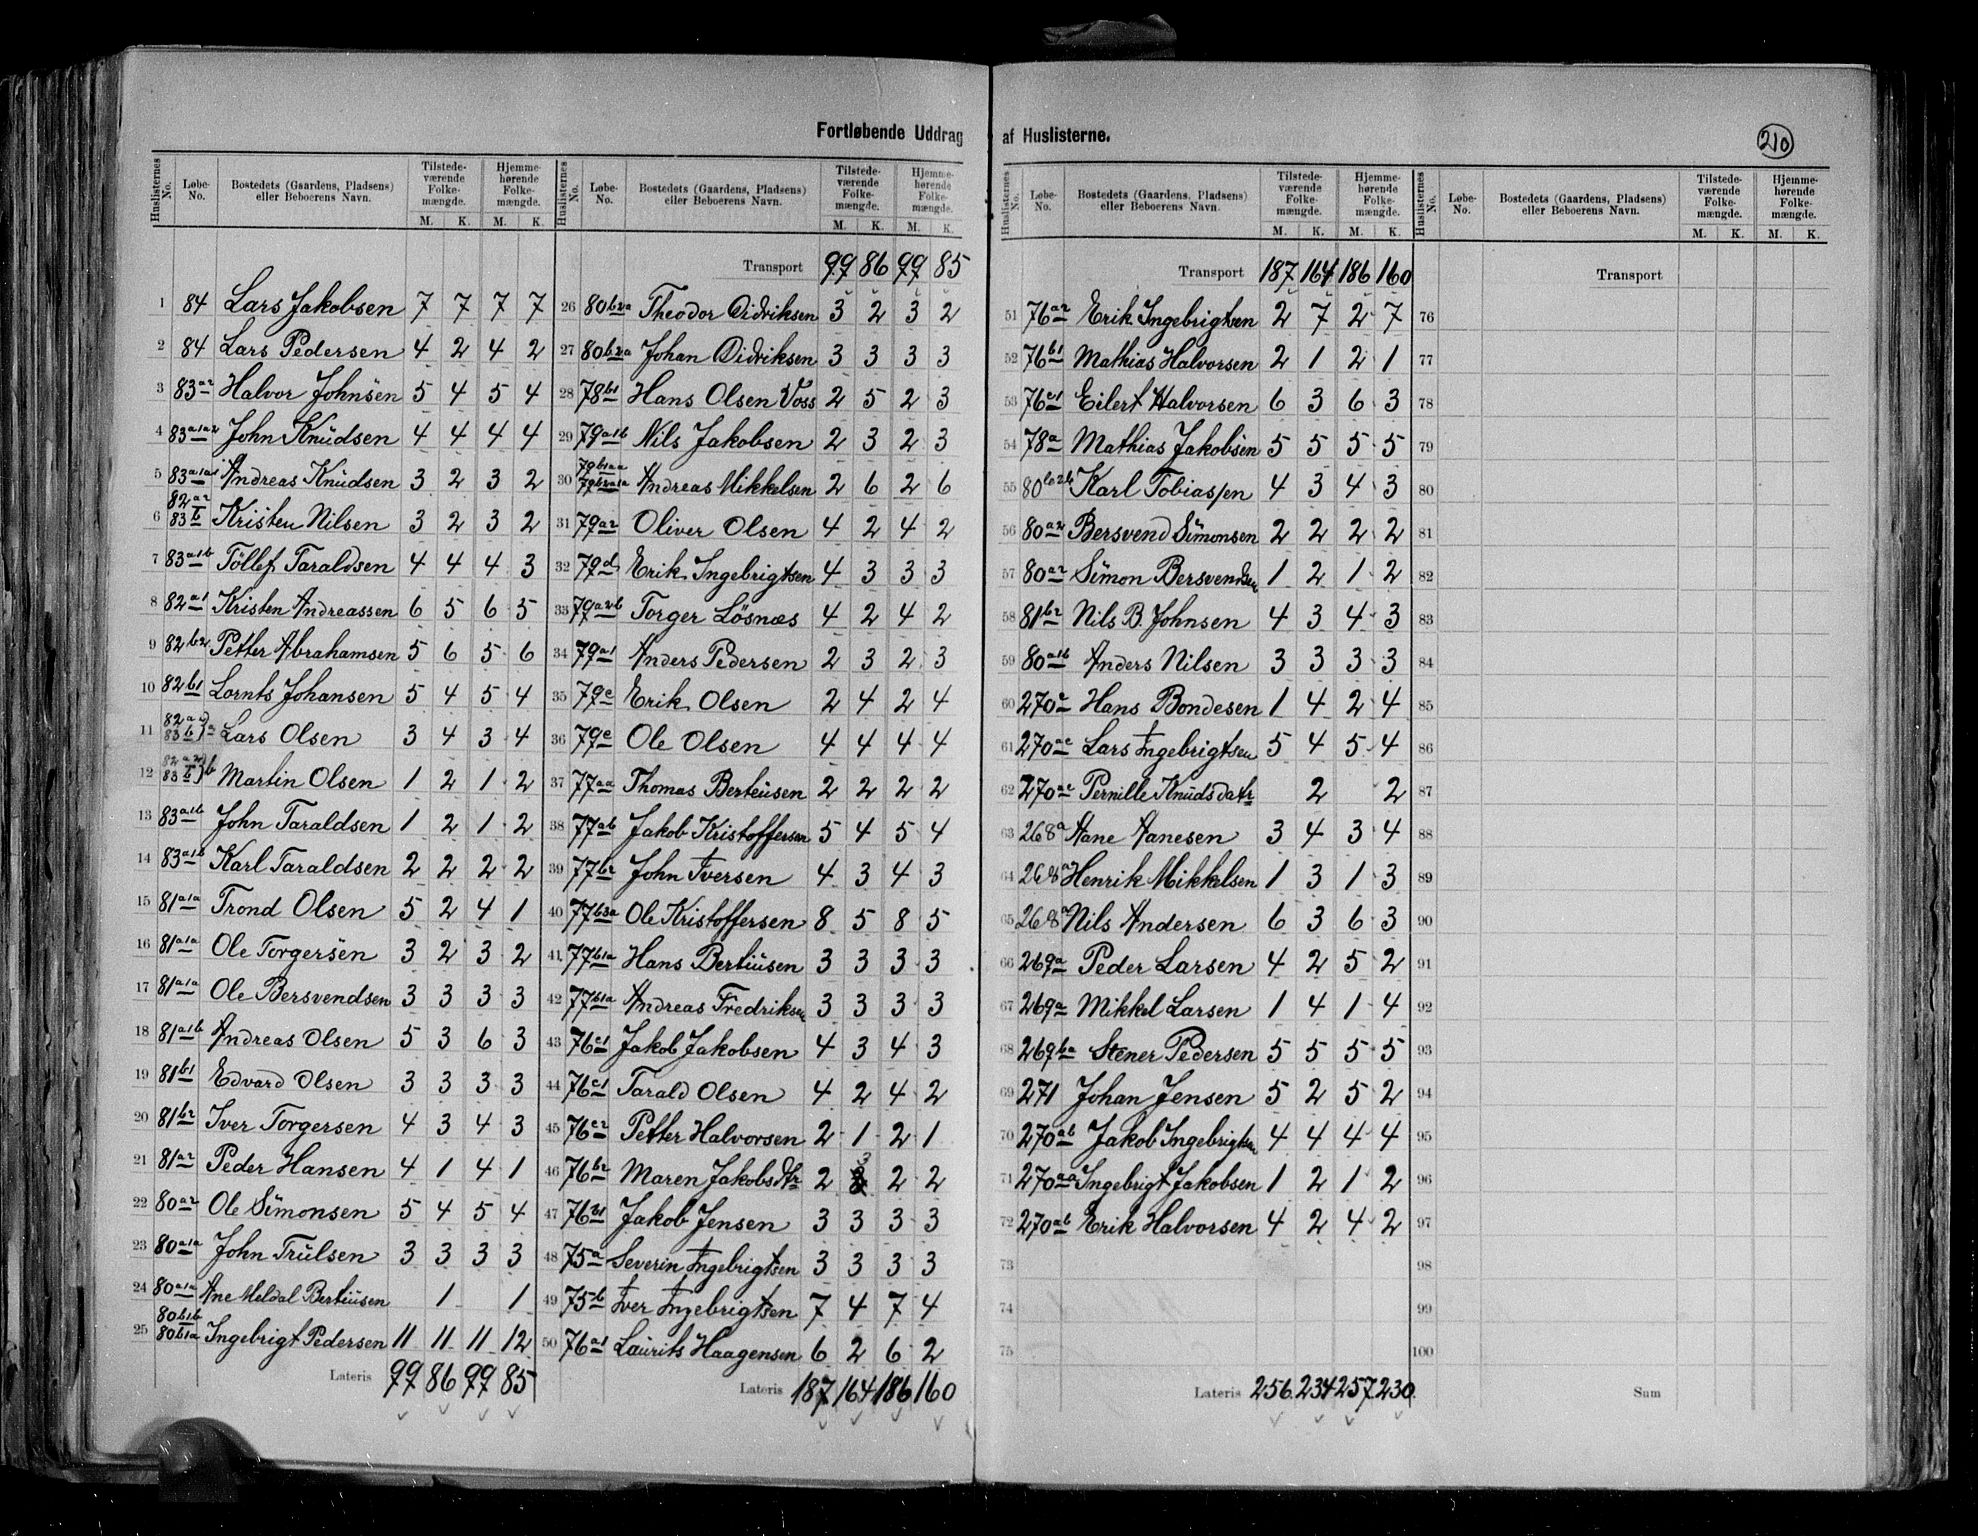 Fortløbende Uddrag af Huslisterne.
210
Huslisternes No. Løbe-No. Bostedets (Gaardens, Pladsens) eller Beboerens Navn. Tilstedeværende Folkemængde. M. K. Hjemmehørende Folkemængde. M. K.
1 84 Lars Jakobsen 7 7 7 7
2 84 Lars Pedersen 4 2 4 2
3 83a2 Halvor Johnsen 5 4 5 4
4 83a1a2 John Knudsen 4 4 4 4
5 83a1a1 Andreas Knudsen 3 2 3 2
6 82a2 83b Kristen Nilsen 3 2 3 2
7 83a1b Tollef Taraldsen 4 4 4 3
8 82a1 Kristen Andreassen 6 5 6 5
9 82b2 Petter Abrahamsen 5 6 5 6
10 82b1 Lornts Johansen 5 4 5 4
11 82a2 83b)a Lars Olsen 3 4 3 4
12 82a2 83b)b Martin Olsen 1 2 1 2
13 83a1b John Taraldsen 1 2 1 2
14 83a1b Karl Taraldsen 2 2 2 2
15 81a1a Trond Olsen 5 2 4 1
16 81a1a Ole Torgersen 3 2 3 2
17 81a1a Ole Bersvendsen 3 3 3 3
18 81a1b Andreas Olsen 5 3 6 3
19 81b1 Edvard Olsen 3 3 3 3
20 81b2 Iver Torgersen 4 3 4 3
21 81a2 Peder Hansen 4 1 4 1
22 80a2 Ole Simonsen 5 4 5 4
23 80a1a John Trulsen 3 3 3 3
24 80a1a Ane Meldal Bertiusen 1 1
25 80b1b 80b1a Ingebrigt Pedersen 11 11 11 12
Lateris 99 86 99 85
Huslisternes No. Løbe-No. Bostedets (Gaardens, Pladsens) eller Beboerens Navn. Tilstedeværende Folkemængde. M. K. Hjemmehørende Folkemængde. M. K.
Transport 99 86 99 85
26 80b2a Theodor Didriksen 3 2 3 2
27 80b2a Johan Didriksen 3 3 3 3
28 78b1 Hans Olsen Voss 2 5 2 3
29 79a1b Nils Jakobsen 2 3 2 3
30 79b1aa 79b2a1a Andreas Mikkelsen 2 6 2 6
31 79a2 Oliver Olsen 4 2 4 2
32 79d Erik Ingebrigtsen 4 3 3 3
33 79a2b Torger Løsnæs 4 2 4 2
34 79a1 Anders Pedersen 2 3 2 3
35 79c Erik Olsen 2 4 2 4
36 79e Ole Olsen 4 4 4 4
37 77aa Thomas Berteusen 2 2 2 2
38 77ab Jakob Kristoffersen 5 4 5 4
39 77b2 John Iversen 4 3 4 3
40 77b3a Ole Kristoffersen 8 5 8 5
41 77b1a Hans Bertiusen 3 3 3 3
42 77b1a Andreas Fredriksen 3 3 3 3
43 76c1 Jakob Jakobsen 4 3 4 3
44 76c1 Tarald Olsen 4 2 4 2
45 76c2 Petter Halvorsen 2 1 2 1
46 76b2 Maren Jakobsdtr 2 3 2 2
47 76b1 Jakob Jensen 3 3 3 3
48 75a Severin Ingebrigtsen 3 3 3 3
49 75b Iver Ingebrigtsen 7 4 7 4
50 76a1 Laurits Haagensen 6 2 6 2
Lateris 187 164 186 160
Huslisternes No. Løbe-No. Bostedets (Gaardens, Pladsens) eller Beboerens Navn. Tilstedeværende Folkemængde. M. K. Hjemmehørende Folkemængde. M. K.
Transport 187 164 186 160
51 76a2 Erik Ingebrigtsen 2 7 2 7
52 76b1 Mathias Halvorsen 2 1 2 1
53 76c1 Eilert Halvorsen 6 3 6 3
54 78a Mathias Jakobsen 5 5 5 5
55 80b2b Karl Tobiassen 4 3 4 3
56 80a2 Bersvend Simonsen 2 2 2 2
57 80a2 Simon Bersvendsen 1 2 1 2
58 81b2 Nils B. Johnsen 4 3 4 3
59 80a1b Anders Nilsen 3 3 3 3
60 270c Hans Bondesen 1 4 2 4
61 270ac Lars Ingebrigtsen 5 4 5 4
62 270ac Pernille Knudsdatr 2 2
63 268a Aane Aanesen 3 4 3 4
64 268a Henrik Mikkelsen 1 3 1 3
65 268a Nils Andersen 6 3 6 3
66 269a Peder Larsen 4 2 5 2
67 269a Mikkel Larsen 1 4 1 4
68 269ba Stener Pedersen 5 5 5 5
69 271 Johan Jensen 5 2 5 2
70 270ab Jakob Ingebrigtsen 4 4 4 4
71 270aa Ingebrigt Jakobsen 1 2 1 2
72 270ab Erik Halvorsen 4 2 4 2
73
74
75
Lateris 256 234 257 230
Huslisternes No. Løbe-No. Bostedets (Gaardens, Pladsens) eller Beboerens Navn. Tilstedeværende Folkemængde. M. K. Hjemmehørende Folkemængde. M. K.
Transport
76
77
78
79
80
81
82
83
84
85
86
87
88
89
90
91
92
93
94
95
96
97
98
99
100
Sum